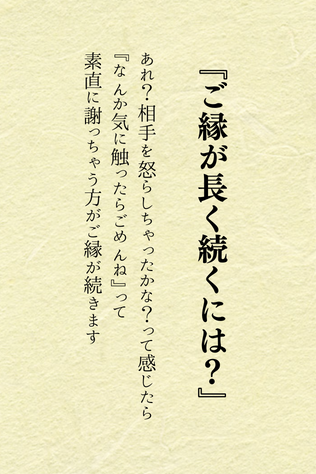 『ご縁が長く続くには？』
あれ？相手を怒らしちゃったかな？って感じたら
『なんか気に触ったらごめんね』って
素直に謝っちゃう方がご縁が続きます